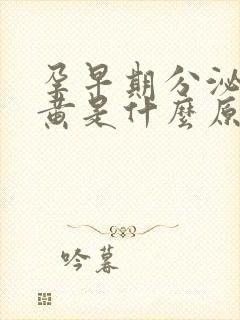 孕早期分泌
黄是什麼原
吟暮